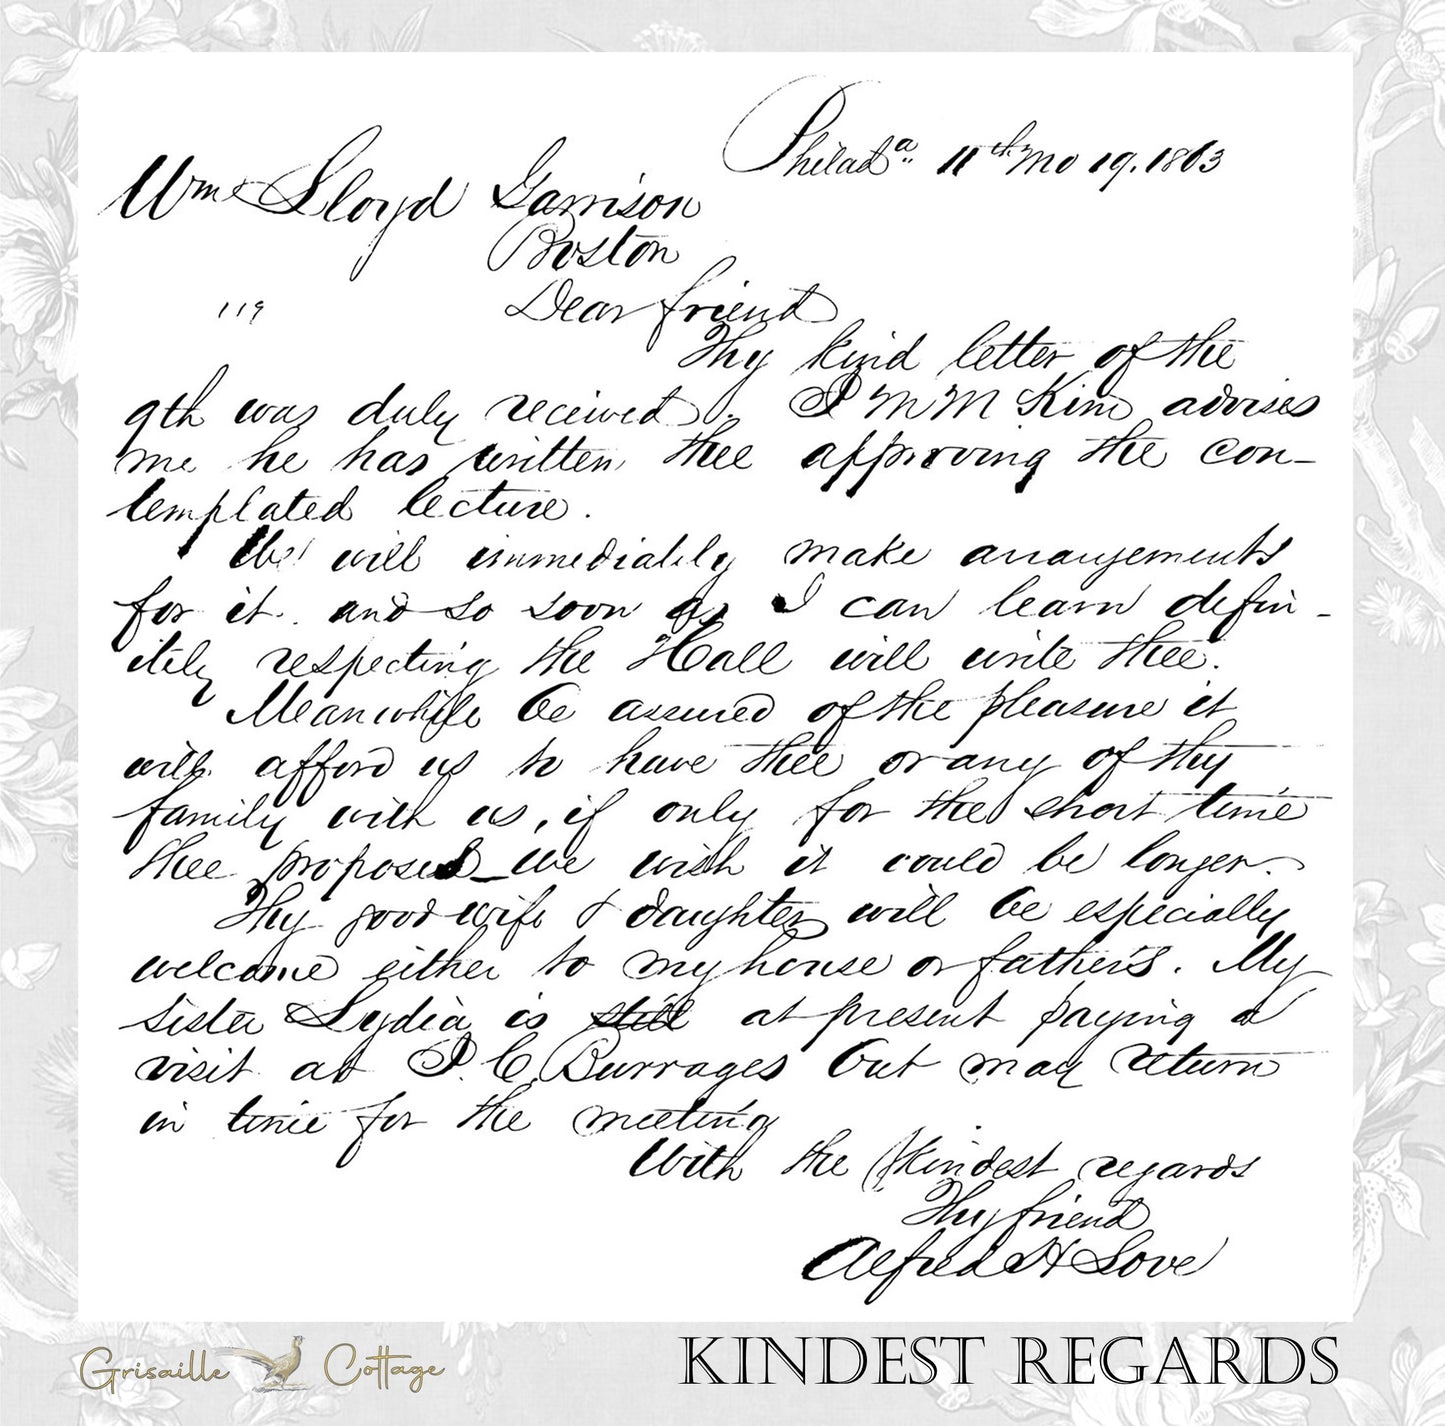 Philad.a 11th Mo 19. 1863
Wm Lloyd Garrison
Boston
119
Dear friend
Thy kind letter of the
9th was duly received. J M M Kim advises
me he has written thee approving the con-
templated lecture.
We will immediately make arrangements
for it. and so soon as I can learn defin-
itely respecting the Hall will write thee.
Meanwhile be assured of the pleasure it
will afford us to have thee or any of thy
family with us, if only for the short time
thee proposed_we wish it could be longer.
Thy good wife & daughter will be especially
welcome either to my house or father's. My
sister Lydia is still at present paying a
visit at J. C. Burrages but may return
in time for the meeting
With the kindest regards
Thy friend
Alfred H Love
Grisaille Cottage
KINDEST REGARDS